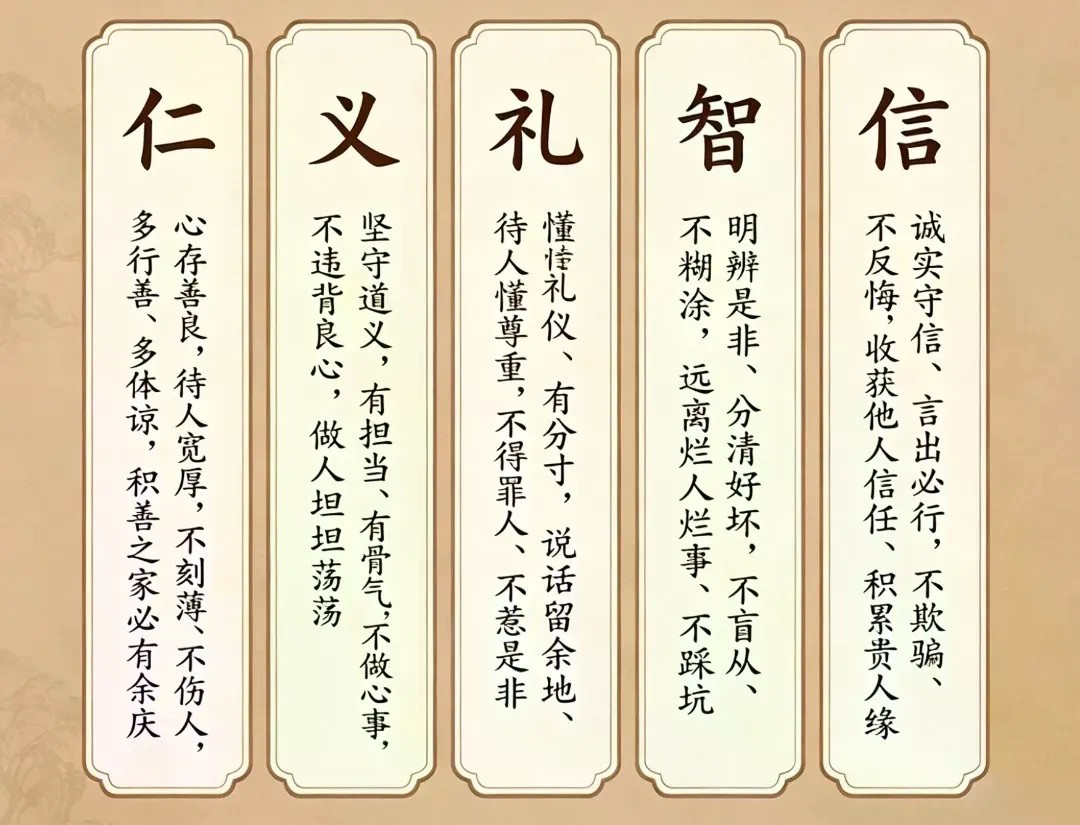 仁
心存善良，待人宽厚，不刻薄、不伤人，
多行善、多体谅，积善之家必有余庆
义
坚守道义，有担当、有骨气，不做心事，
不违背良心，做人坦坦荡荡
礼
懂礼仪、有分寸，说话留余地、
待人懂尊重，不得罪人、不惹是非
智
明辨是非、分清好坏，不盲从、
不糊涂，远离烂人烂事、不踩坑
信
诚实守信、言出必行，不欺骗、
不反悔，收获他人信任、积累贵人缘